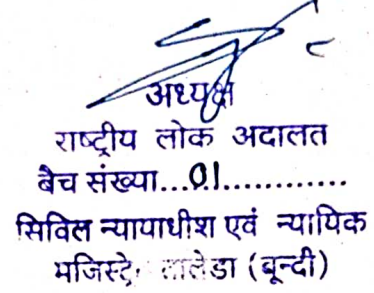 अध्यक्ष
राष्ट्रीय लोक अदालत
बैच संख्या...01.............
सिविल न्यायाधीश एवं न्यायिक
मजिस्ट्रे तालेडा (बून्दी)